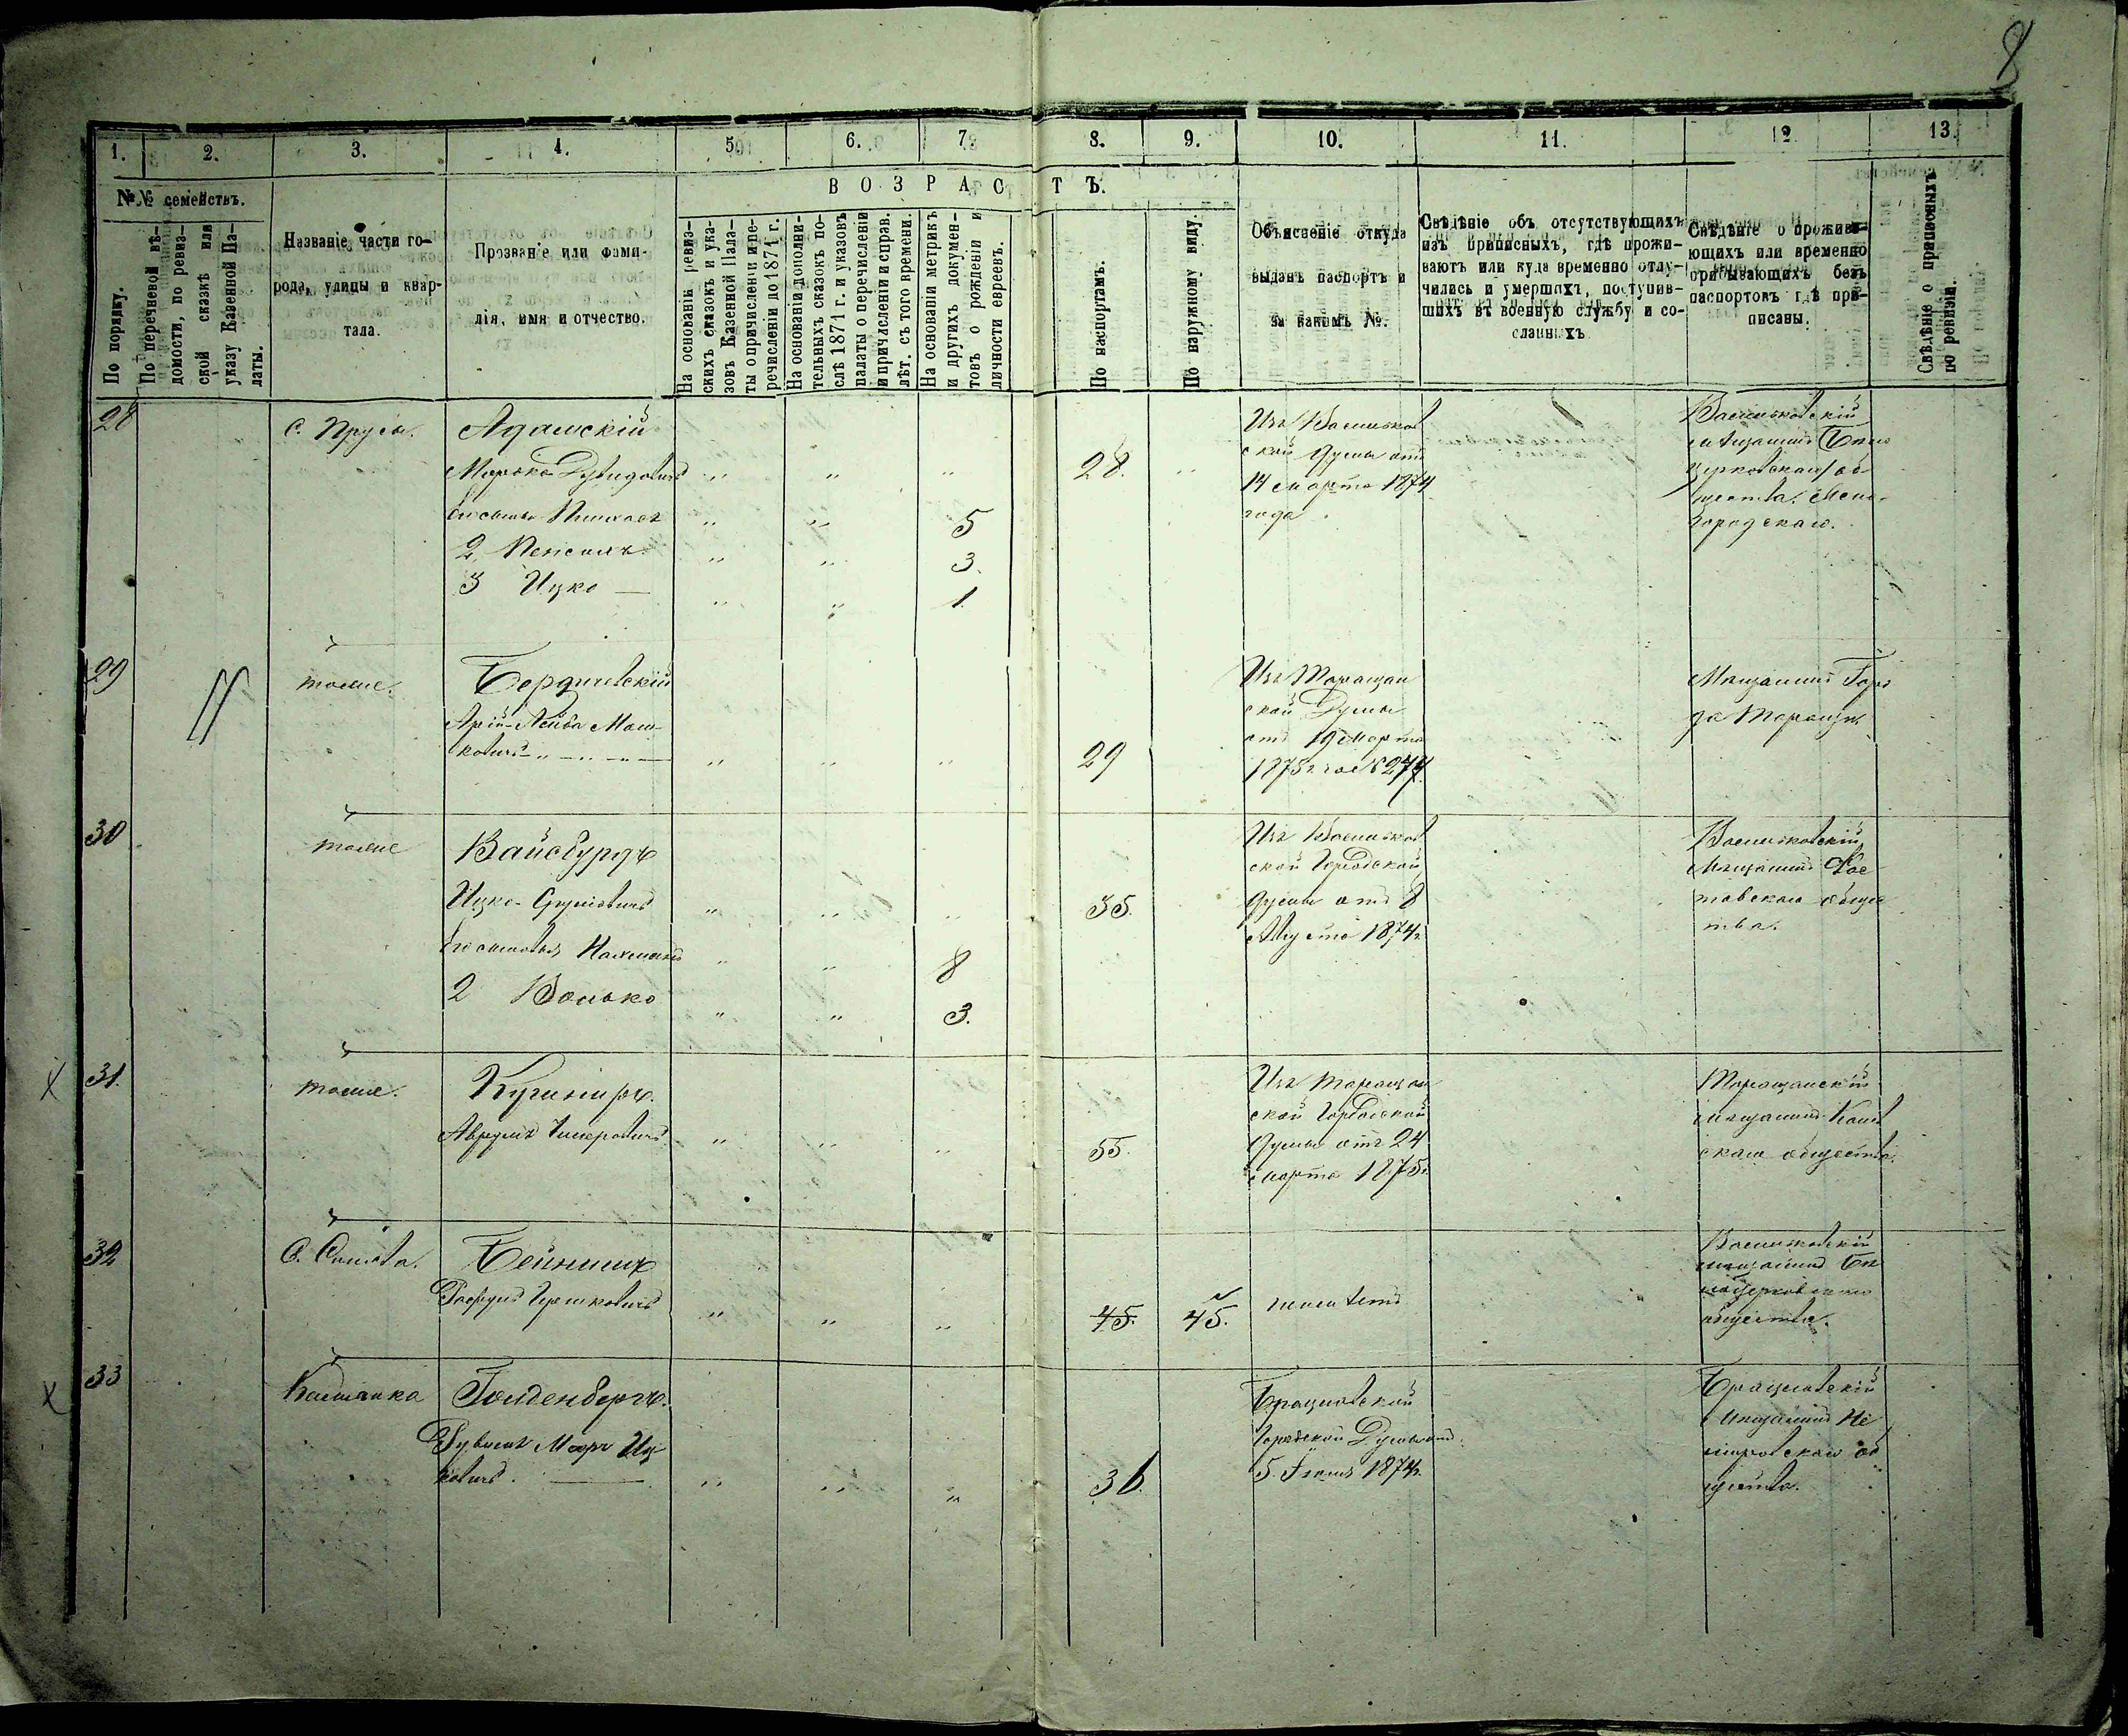 8
1. 2. 3. 4. 5. 6. 7. 8. 9. 10. 11. 12. 13.
№№ семействъ.
По порядку.
По перечневой вѣ-
домости, по ревиз-
ской сказкѣ или
указу Казенной Па-
латы.
Названіе части го-
рода, улицы и квар-
тала.
Прозваніе или фами-
лія, имя и отчество.
ВОЗРАСТЪ.
На основаніи ревиз-
скихъ сказокъ и ука-
зовъ Казенной Пала-
ты о причисленіи и пе-
речисленіи до 1871 г.
На основаніи дополни-
тельныхъ сказокъ по-
слѣ 1871 г. и указовъ
палаты о перечисленіи
и причисленіи и справ.
лѣт. съ того времени.
На основаніи метрикъ
и другихъ докумен-
товъ о рожденіи и
личности евреевъ.
По паспортамъ.
По наружному виду.
Объясненіе откуда
выданъ паспортъ и
за какимъ №.
Свѣдѣніе объ отсутствующихъ
изъ приписныхъ, гдѣ прожи-
ваютъ или куда временно отлу-
чились и умершихъ, поступив-
шихъ въ военную службу и со-
сланныхъ
Свѣдѣніе о прожива-
ющихъ или временно
пребывающихъ безъ
паспортовъ гдѣ при-
писаны.
Свѣдѣніе о приписныхъ
по ревизіи.
28
С. Прусы.
Адамскій
Мошко Дувидовичъ
28.
Его сынъ Пинхасъ
5
2
3.
3 Ицко
1.
Изъ Васильков
ской Думы отъ
14 марта 1874
года.
Васильковскій
мѣщанинъ Бѣло
церковскаго об
щества.
городскаго.
29
тоже.
Бердичевскій
Арій-Лейба Мош-
ковичъ
29
Изъ Таращан
ской Думы
отъ 19 Марта
1875 г. за № 274.
Мѣщанинъ Горо
да Таращи
30
тоже
Вайсбурдъ
Ицко Сруліовичъ
35.
Его сыновья Нахманъ
8
2 Волько
3.
Изъ Васильков
ской Городской
Думы отъ 8
Августа 1874 г.
Васильковскій
мѣщанинъ
товскаго общес
тва.
31.
тоже.
Кушниръ.
Аврумъ
55.
Изъ Таращан
ской Городской
Думы отъ 24
марта 1875 г.
Таращанскій
мѣщанинъ
скаго общества.
32
С.
Бейнишъ
Гершковичъ
45. 45.
неимѣетъ
Васильковскій
мѣщанинъ Бѣ
лоцерковскаго
общества.
33
Каштанка
Голденбергъ.
Рувинъ Мееръ Иц
ковичъ.
36.
Брацлавской
Городской Думы отъ
5 1874 г.
Брацлавскій
мѣщанинъ Не
мировскаго об
щества.